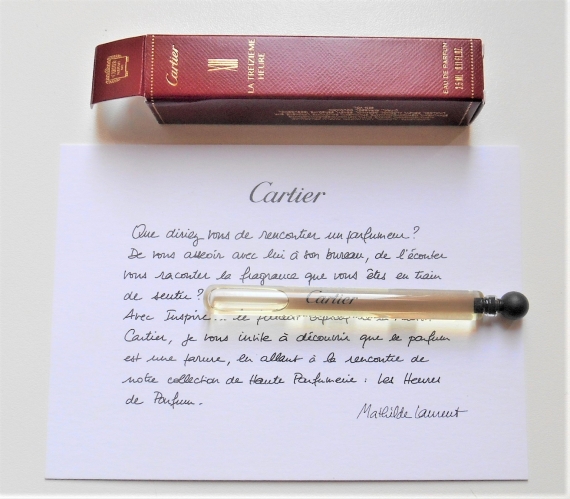 Cartier
XIII
LA TREIZIÈME
HEURE
EAU DE PARFUM
Cartier
Que diriez vous de rencontrer un parfumeur ?
De vous asseoir avec lui à son bureau, de l'écouter
vous raconter la fragrance que vous êtes en train
de sentir ?
Cartier
Avec Inspire...
Cartier, je vous invite à découvrir que le parfum
est une parure, en allant à la rencontre de
notre collection de Haute Parfumerie : Les Heures
de Parfum.
Mathilde Laurent